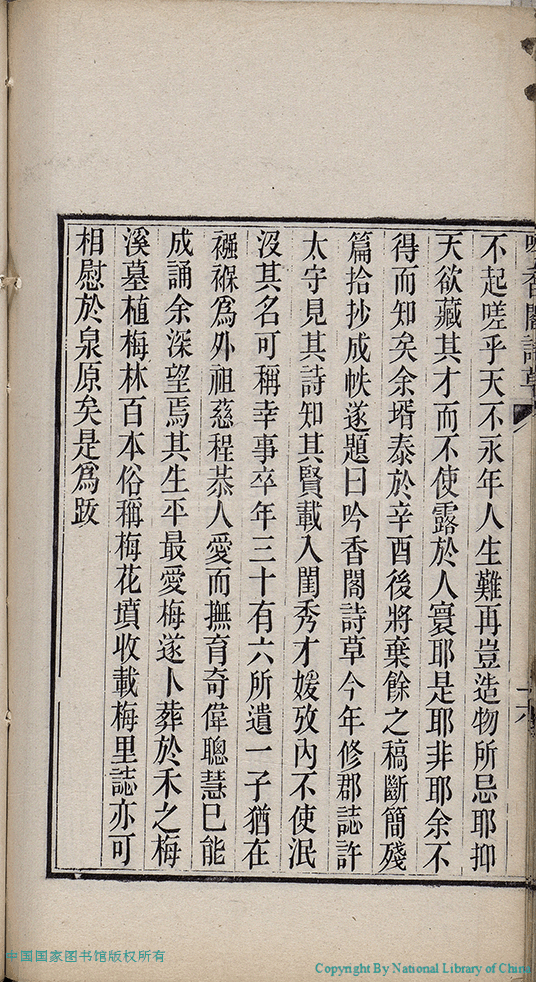 吟香閣詩草
不起嗟乎天不永年人生難再豈造物所忌耶抑
天欲藏其才而不使露於人寰耶是耶非耶余不
得而知矣余壻泰於辛酉後將棄餘之稿斷簡殘
篇拾抄成帙遂題曰吟香閣詩草今年修郡誌許
太守見其詩知其賢載入閨秀才媛攷內不使泯
沒其名可稱幸事卒年三十有六所遺一子猶在
襁褓爲外祖慈程恭人愛而撫育奇偉聰慧已能
成誦余深望焉其生平最愛梅遂卜葬於禾之梅
溪墓植梅林百本俗稱梅花墳收載梅里誌亦可
相慰於泉原矣是爲跋
中国国家图书馆版权所有
Copyright By National Library of China